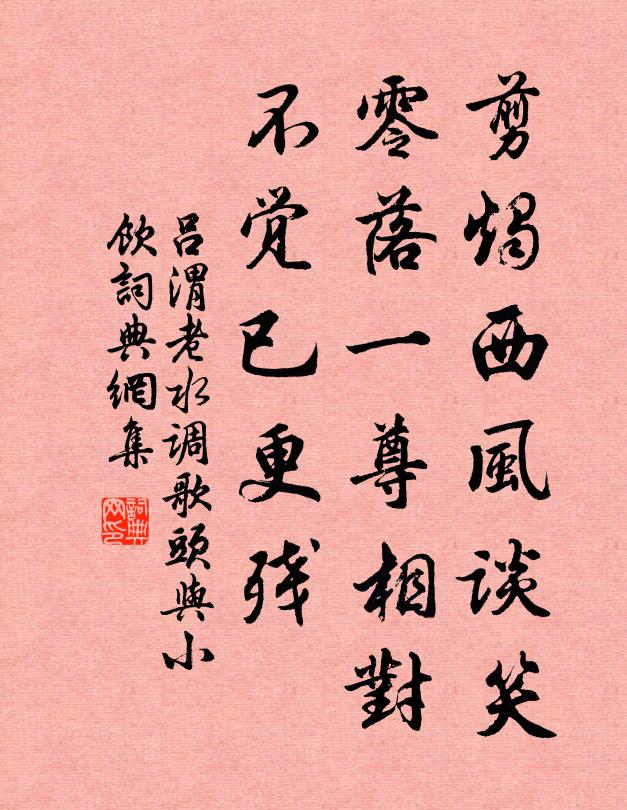 剪烛西風谈笑
零落一尊相對
不觉已更残
吕渭老水调歌頭與小
飲詞典網集
詞典网印